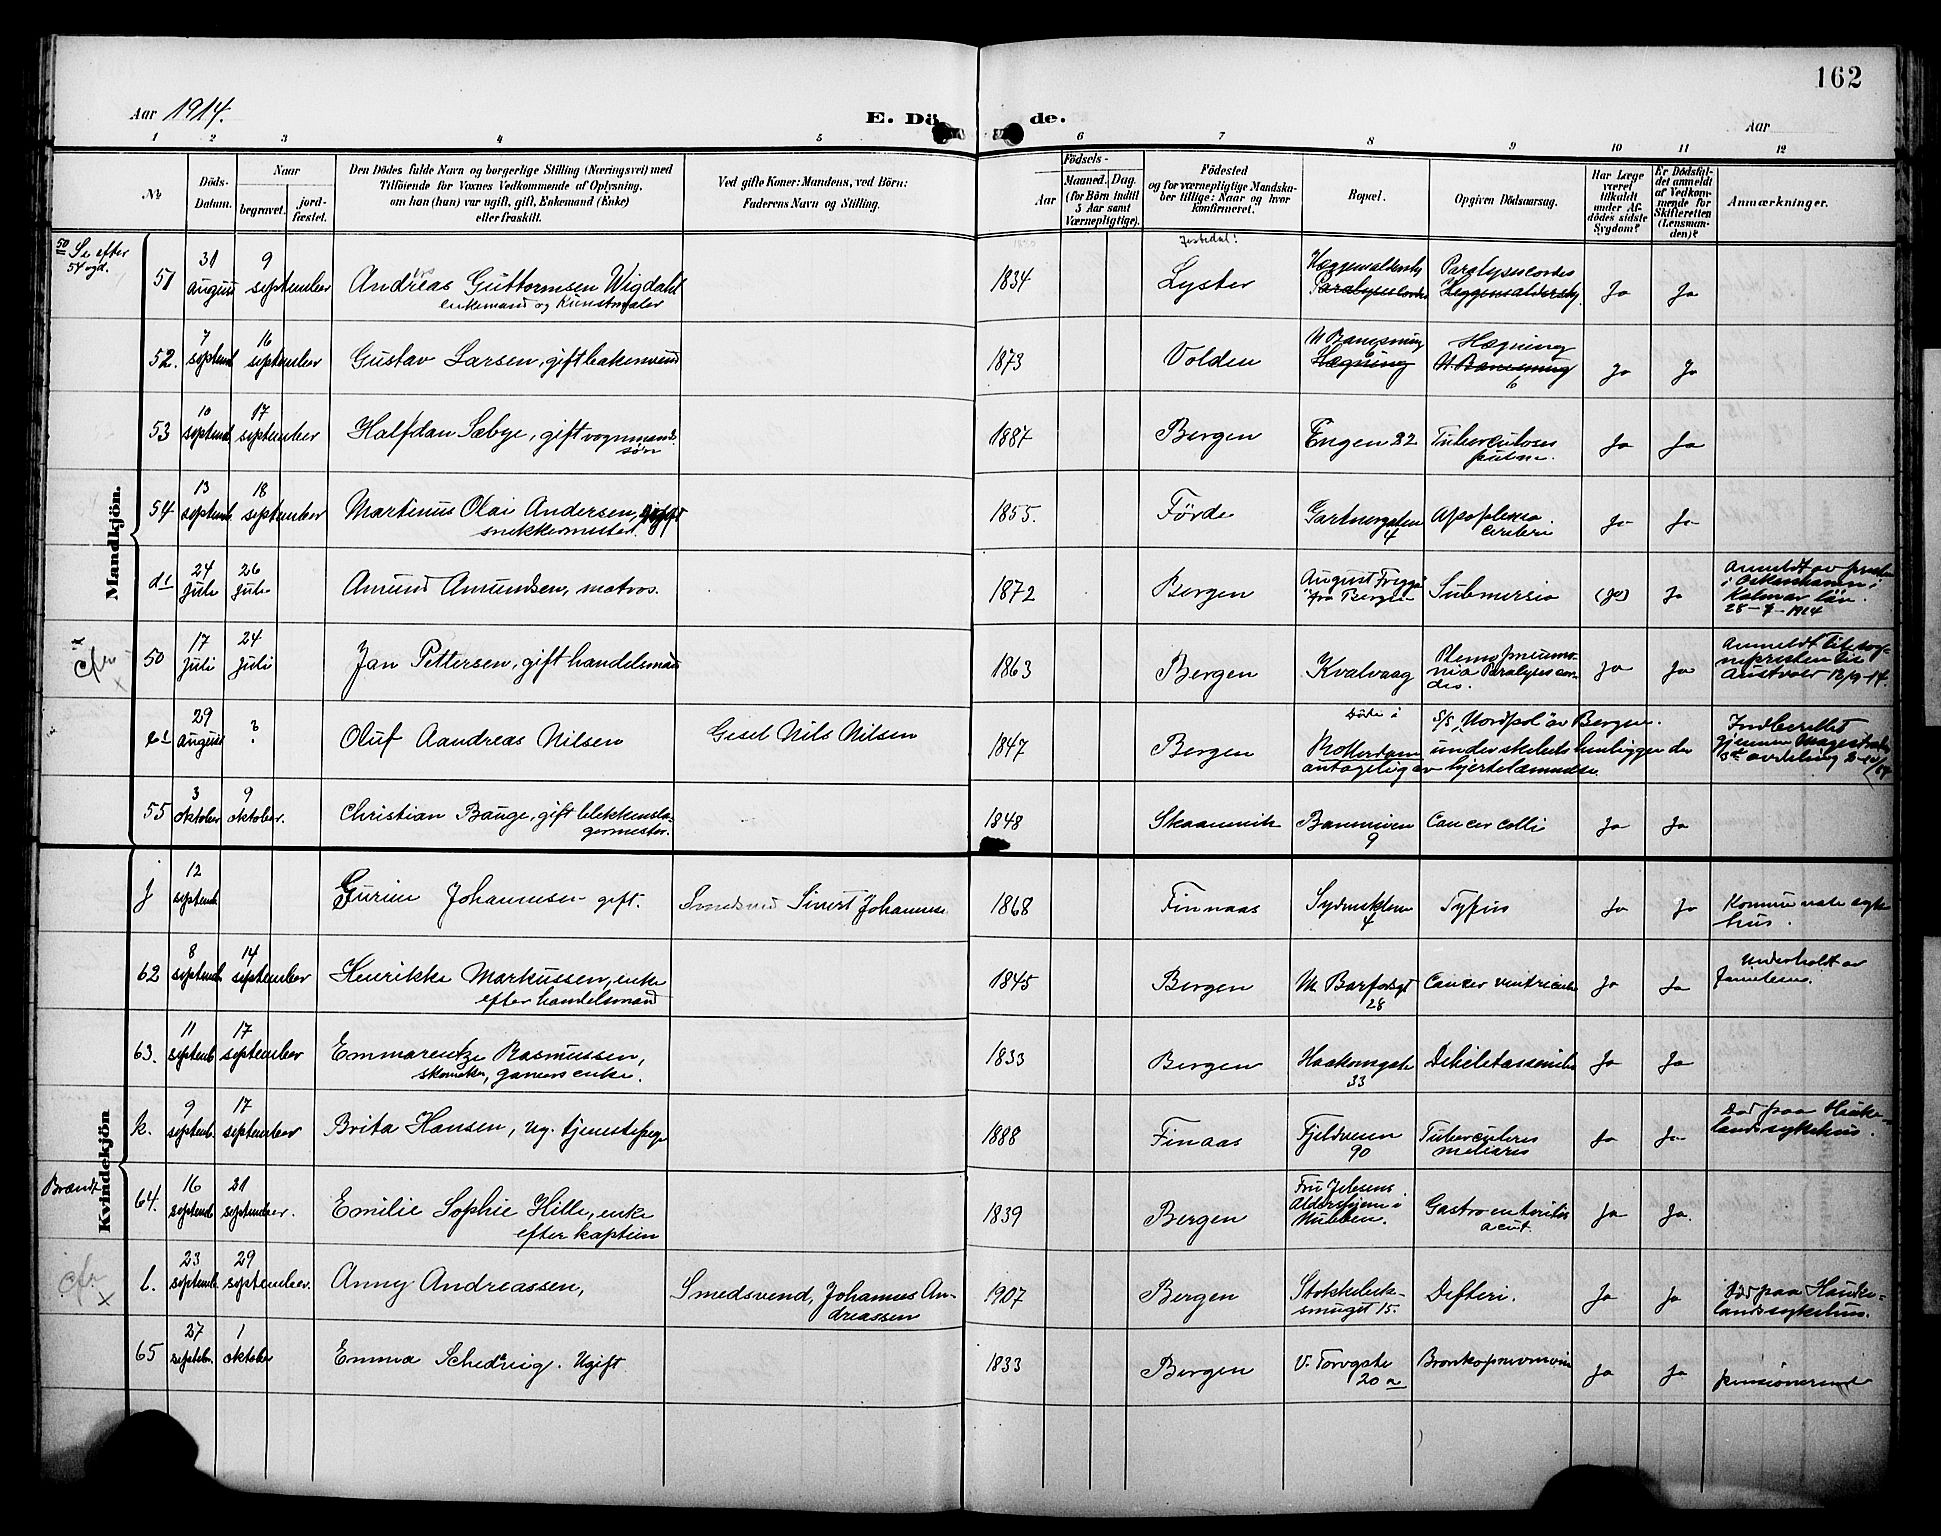 162
Aar 1914.
E. Dö de.
Aar
1 2 3 4 5 6 7 8 9 10 11 12
№
Döds-Datum.
Naar
begravet.
jord-fæstet.
Den Dödes fulde Navn og borgerlige Stilling (Næringsvei) med
Tilföiende for Voxnes Vedkommende af Oplysning,
om han (hun) var ugift, gift, Enkemand (Enke)
eller fraskilt.
Ved gifte Koner: Mandens, ved Börn:
Faderens Navn og Stilling.
Födsels-
Aar
Maaned. Dag.
(for Börn indtil
5 Aar samt
Værnepligtige).
Födested
og for værnepligtige Mandska-
ber tillige: Naar og hvor
konfirmeret.
Bopæl.
Opgiven Dödsaarsag.
Har Læge
været
tilkaldt
under Af-
dödes sidste
Sygdom?
Er Dödsfal-
det anmeldt
af Vedkom-
mende for
Skifteretten
(Lensman-
den)?
Anmærkninger.
50 Se efter
54 ogd.
Mandkjön.
51 31 august 9 september Andreas Guttormsen Wigdahl
enkemand og Kunstmaler
1834 Jostedal! Lyster Hæggensaldershj Paralysis cordis Ja Ja
52. 7 septemb 16 september Gustav Larsen, gift bakersvend 1873 Volden Hægning Ja Ja
53 10 septemb 17 september Halfdan Sæbye, gift vognmands
søn
1887 Bergen Engen 22 Tuberculosis
pulm. Ja Ja
54 13 septemb. 18 september Martinus Olai Andersen, gift
snekkermester.
1855. Förde Gartnergaten
4 Apoplexia
cerebri Ja Ja
d1 24 juli 26 juli Amund Amundsen, matros. 1872 Bergen August Frygg
fra Bergen Submersio (ja) Ja Anmeldt av
i Oskarshavn i
Kalmar län.
28-7-1914
cfr x
50 17 juli 24 juli Jan Pettersen, gift handelsmand 1863 Bergen Kvalvaag Plevropneumo-
nia Paralysis cor-
dis. Ja Ja Anmeldt til sog-
nepresten til
Austvoll 13/9-14.
e1 29 august ? Oluf Aandreas Nilsen Gesel Nils Nilsen 1847 Bergen Døde i S/S "Nordpol" av Bergen.
Rotterdam under skibets henliggen der
antagelig av hjertelammelse Indberettet
gjennem Magistratens
55 3 oktober 9 oktober. Christian Bauge, gift blikkensla-
germester.
1848 Skaanevik 9 Cancer colli Ja Ja
Kvindekjön
j 12 septemb. Gurine Johannesen gift. Smedsvend Sivert Johannese 1868 Finnaas 4 Tyfus Ja Ja Kommunale syke
hus.
62 8 septemb. 14 september Henrikke Markussen, enke
efter handelsmand
1845 Bergen 28 Cancer ventriculi Ja Ja Underholdt av
familiene.
63. 11 septemb. 17 september Emmarentze Rasmussen,
skomaker, garvers enke.
1833 Bergen Haakonsgate
33 Debilitas senilis Ja Ja
k. 9 septemb. 17 september Brita Hansen, ug. tjenestepige 1888 Finaas Fjeldveien
90 Tuberculosis
miliaris Ja Ja Død paa Hauke-
landssykehus.
Brandt
64. 16 septemb. 21 september. Emilie Sophie Hille, enke
efter kaptein
1839 Bergen Fru Jebsens
Aldershjem i
Nubben. Gastroenteritis
acut. Ja Ja.
cfr x
l. 23 septemb. 29 september. Anny Andreassen, Smedsvend, Johannes An-
dreassen
1907 Bergen Stokkeleik-
smuget 15. Difteri. Ja Ja Død paa Hauke-
landssykehus.
65 27 septbr. 1 oktober Emma Schedrige. Ugift 1833 Bergen V. Torvgate
20 a Bronkopneumoni Ja Ja